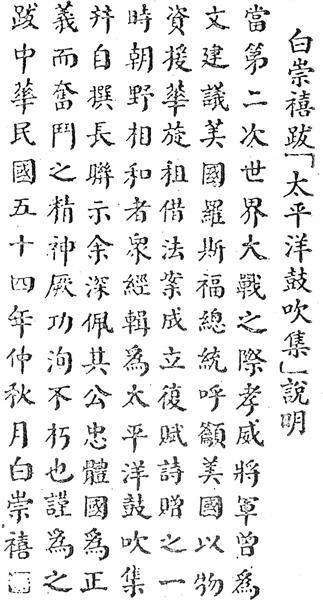 白崇禧跋「太平洋鼓吹集」說明
當第二次世界大戰之際孝威將軍曾為
文建議美國羅斯福總統呼籲美國以物
資援華旋租借法案成立復賦詩贈之一
時朝野相和者衆經輯為太平洋鼓吹集
并自撰長聯示余深佩其公忠體國為正
義而奮鬥之精神厥功洵不朽也謹為之
跋中華民國五十四年仲秋月白崇禧